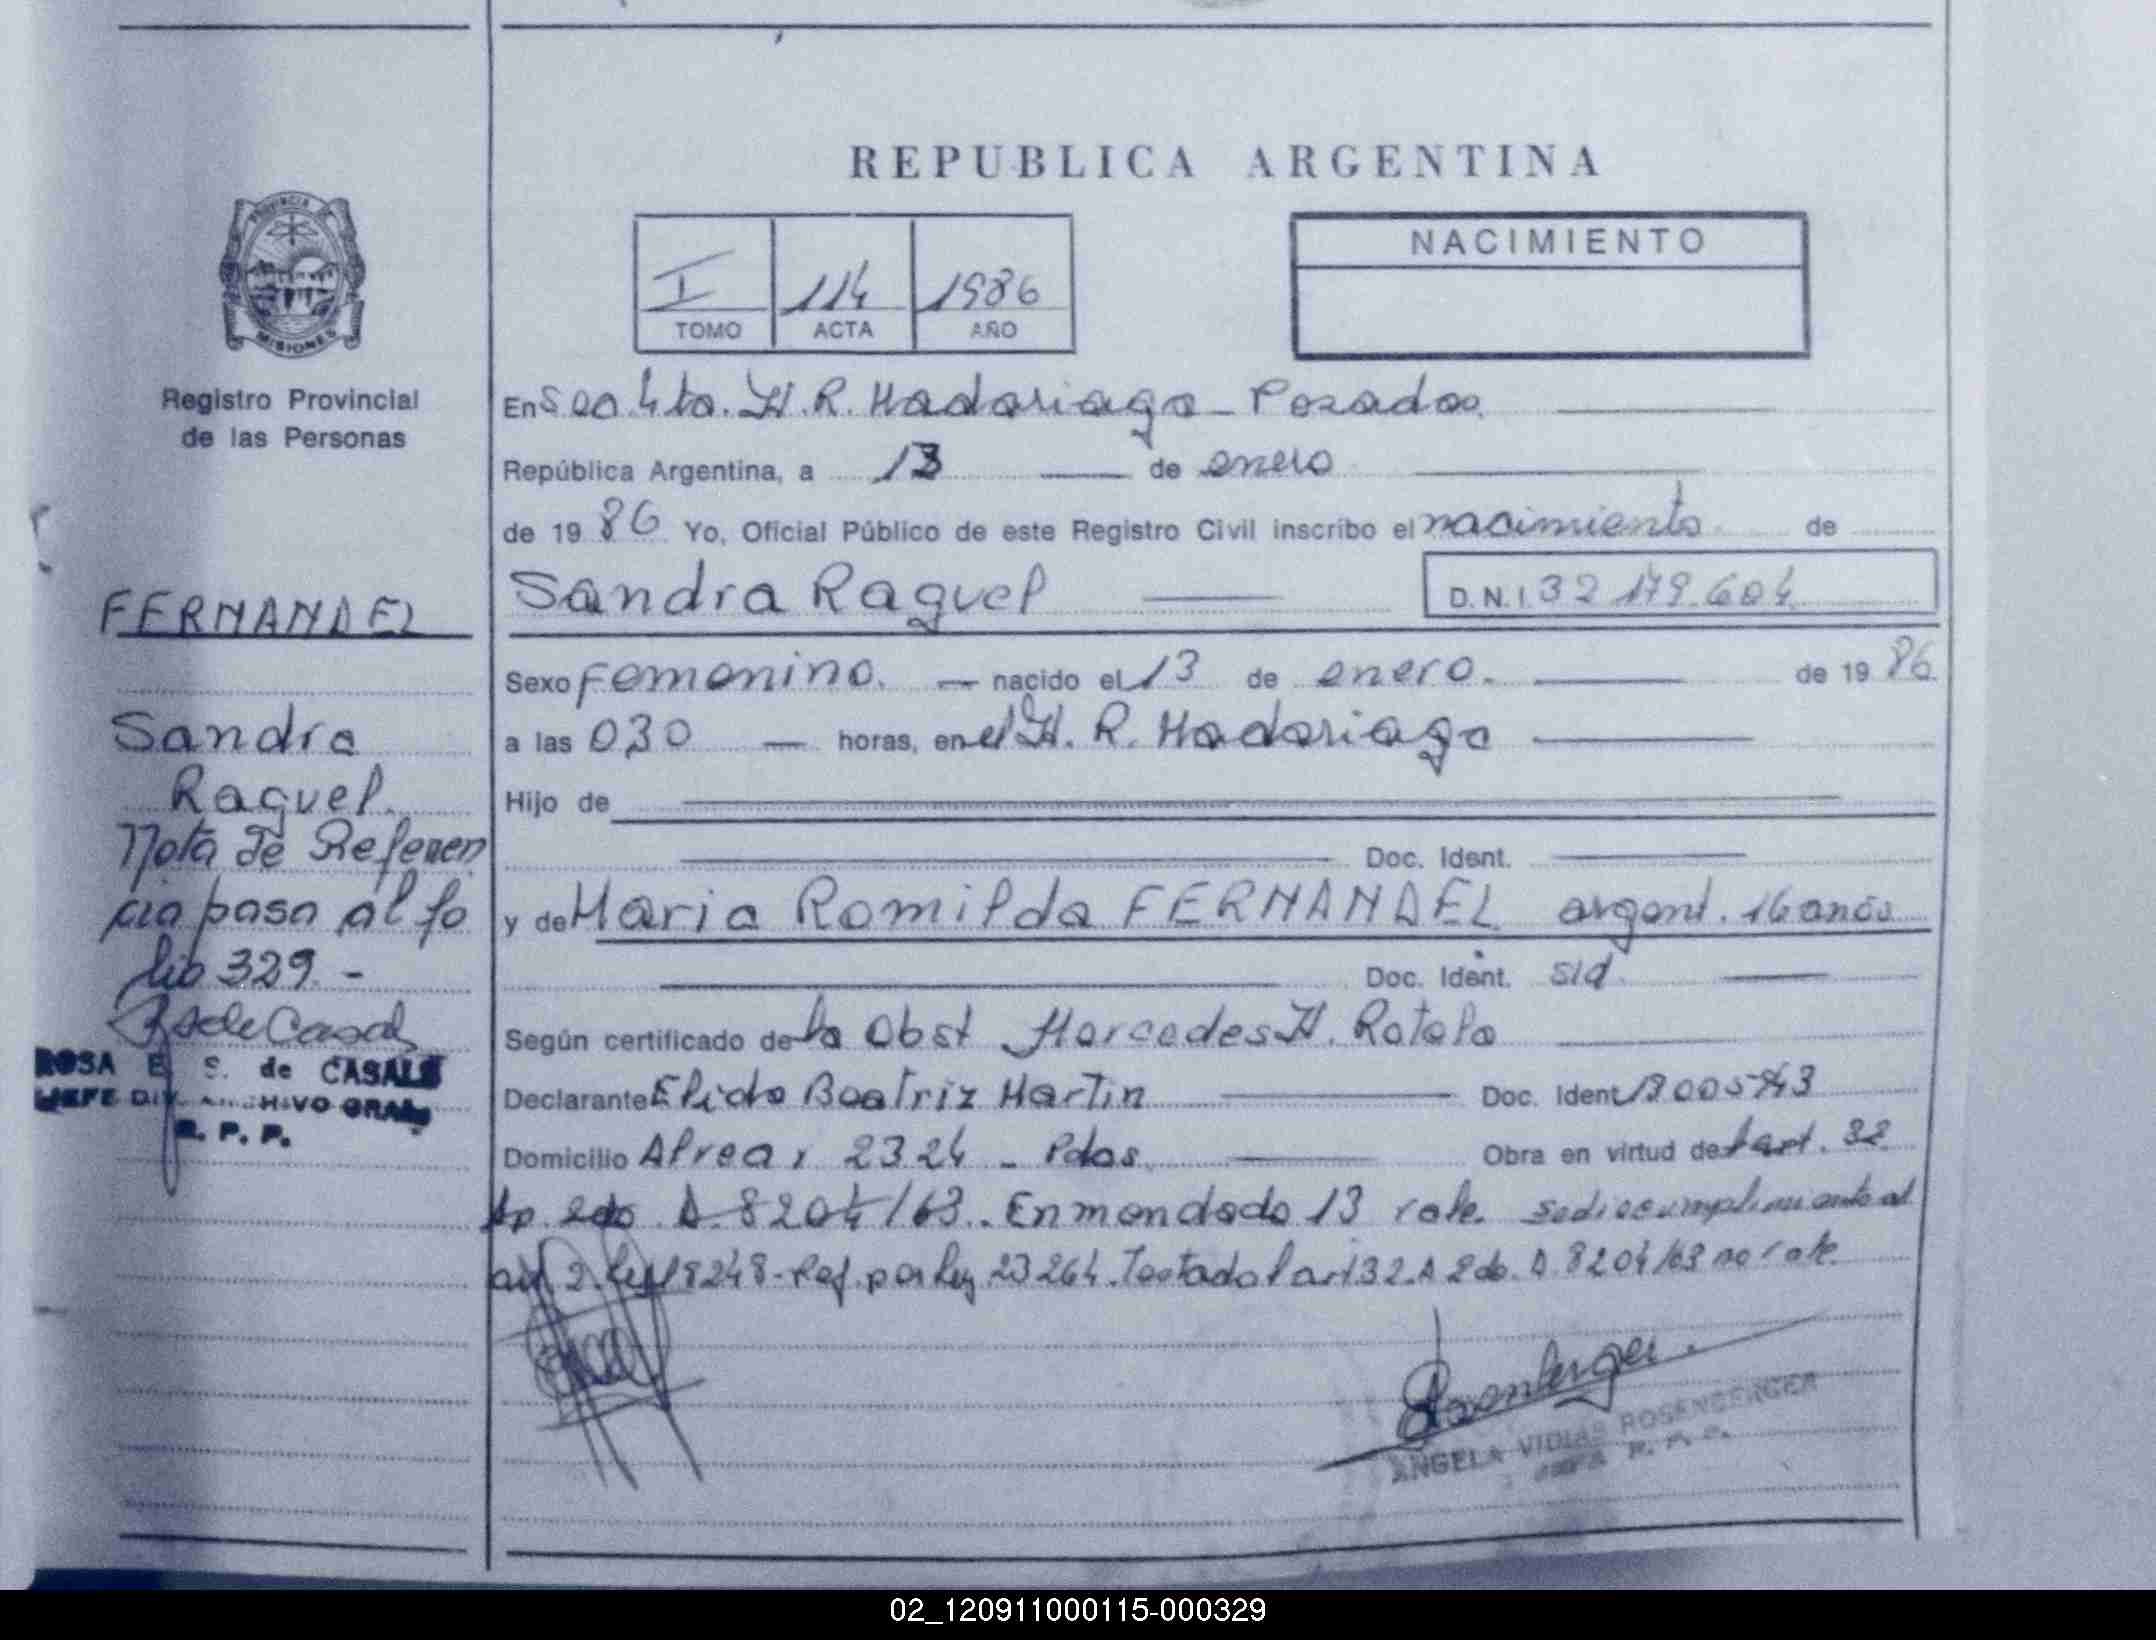 REPUBLICA ARGENTINA
PROVINCIA DE
MISIONES
Registro Provincial
de las Personas
I 114 1986
TOMO ACTA AÑO
NACIMIENTO
En Secc. 4ta. H. R. Madariaga - Posadas.
República Argentina, a 13 de enero
de 19 86 Yo, Oficial Público de este Registro Civil inscribo el nacimiento de
Sandra Raquel D.N.I. 32 179.604
Sexo Femenino. nacido el 13 de enero. de 19 86
a las 0,30 horas, en el H. R. Madariaga
Hijo de
Doc. Ident.
y de Maria Romilda FERNANDEZ argent. 16 anõs
Doc. Ident. s/d
Según certificado de la Obst Mercedes H. Rotela
Declarante Elida Beatriz Martin Doc. Ident
Domicilio Alvear 2324 - Pdas. Obra en virtud de l art. 32
Ap. 2do. D. 8204/63. Enmendado 13 vale. se dió cumplimiento al
art 2. Ley 18248 - Ref. por Ley 23264. Testado l art 32. A 2do. D. 8204/63 no vale.
ANGELA VIDIAS ROSENBERGER
JEFA R. P. P.
FERNANDEZ
Sandra
Raquel.
Nota de Referen
cia pasa al fo
lio 329.-
ROSA E. S. de CASALS
JEFE DIV. ARCHIVO GRAL
R. P. P.
02_120911000115-000329